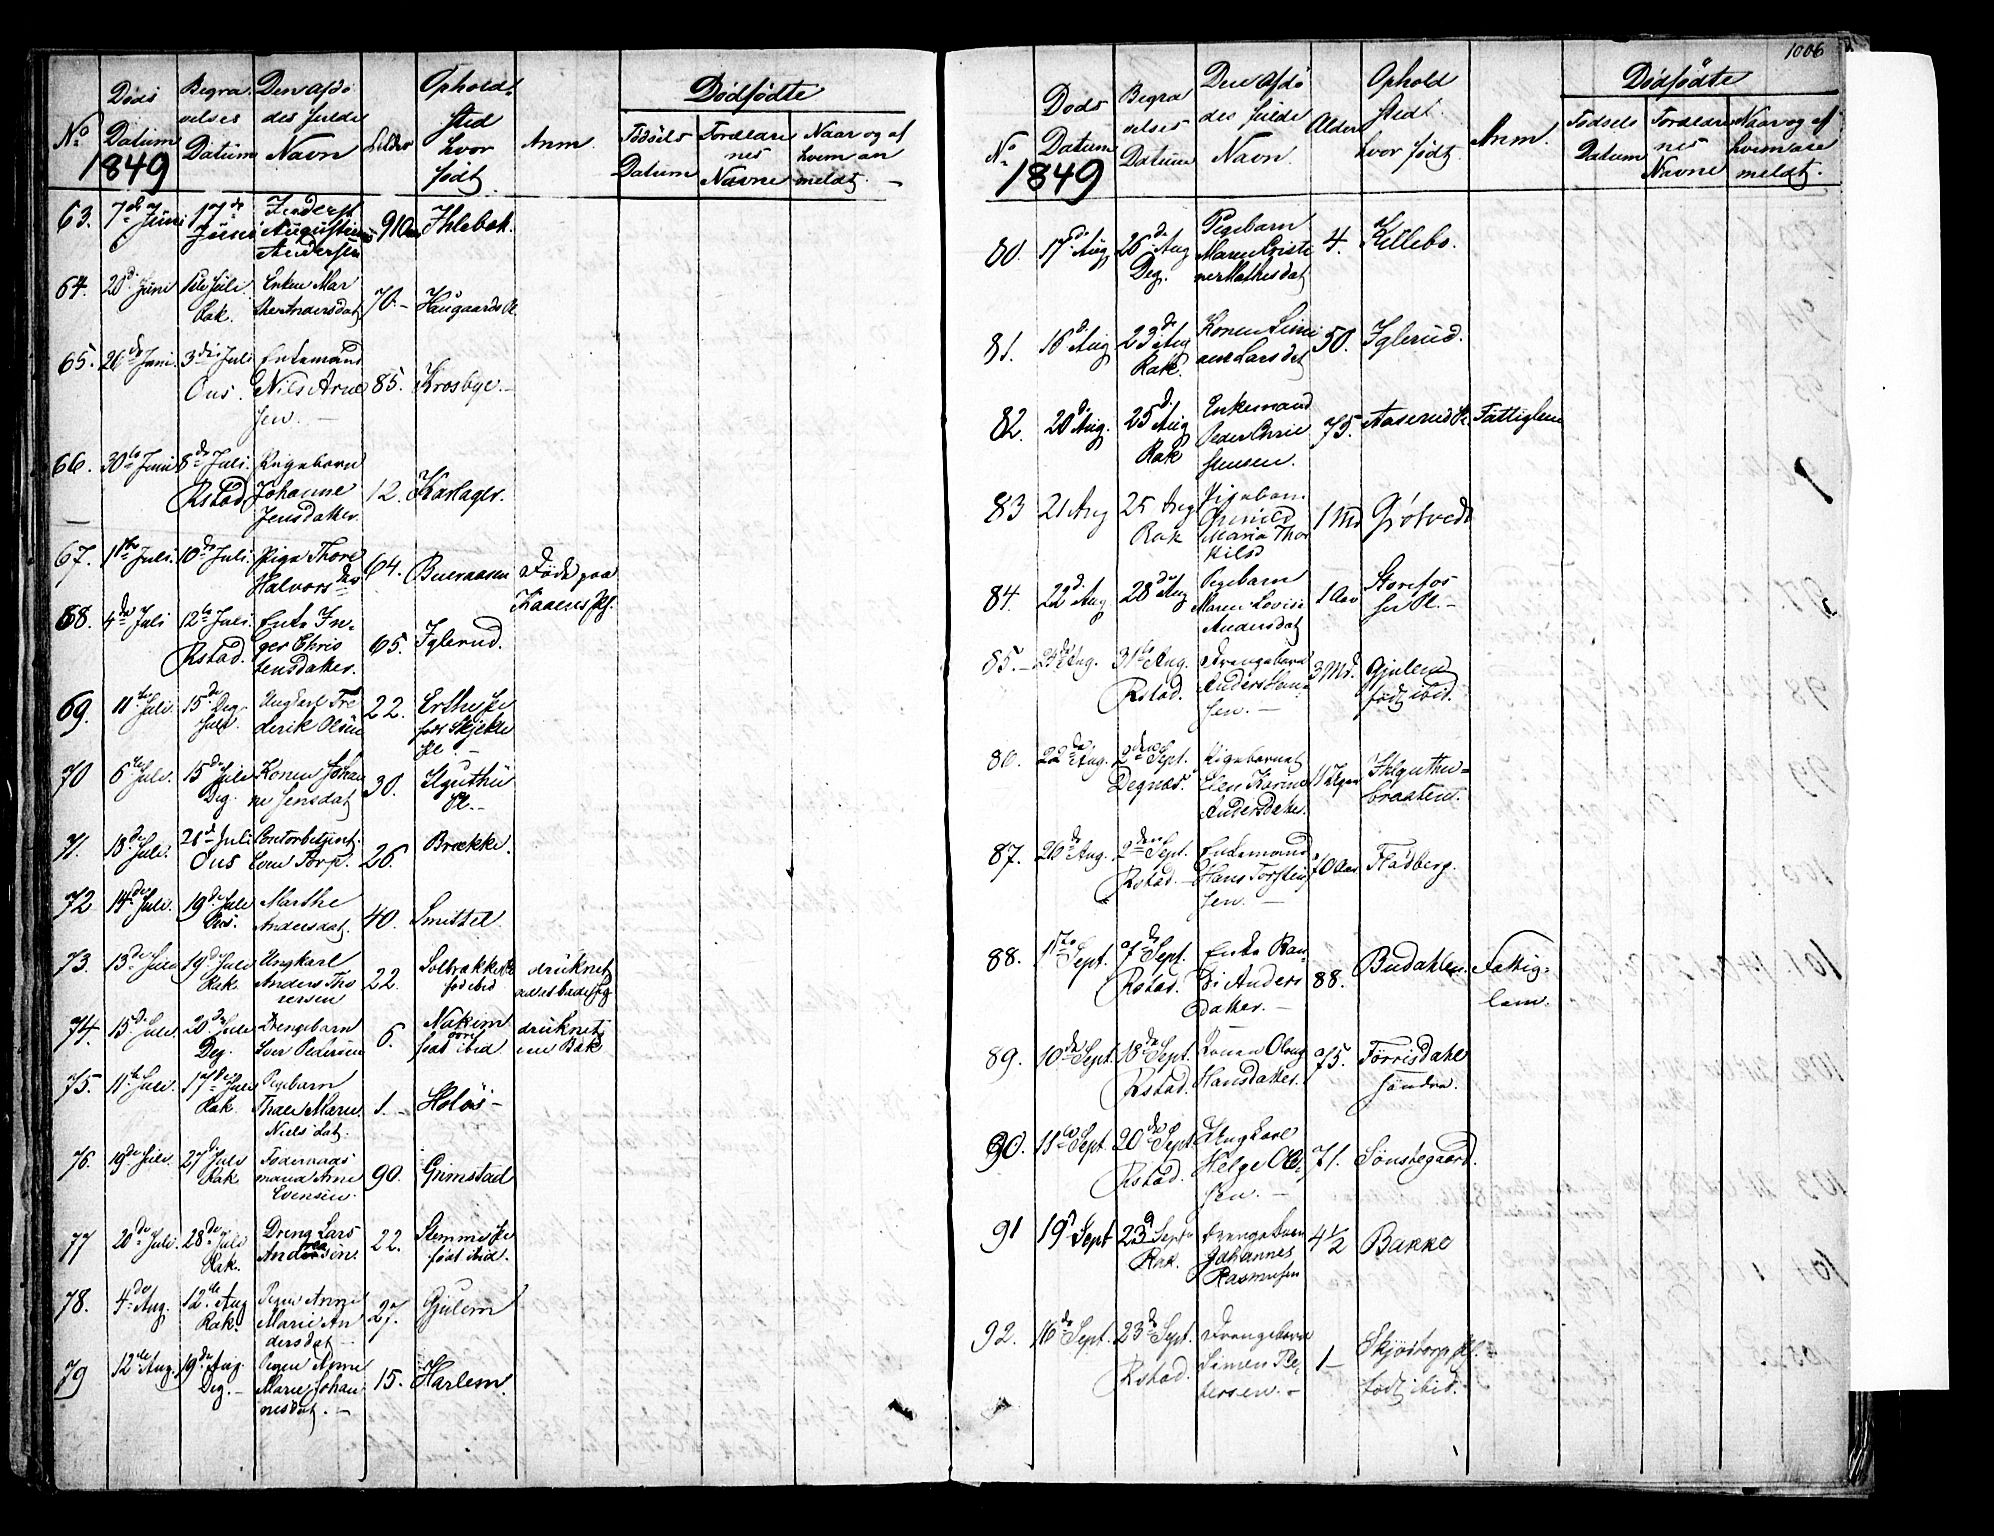 1006
No
Døds
Datum
Begra
velses
Datum
Den afdø
des fulde
Navn
Alder
Ophold
sted
hvor
født
Anm.
Dødfødte
Fødsels
Datum
Forældre
nes
Navne
Naar og af
hvem an
meldt.
1849
63. 7de Juni 17de Juni
Andersen
91 Aar Ihlebæk.
64. 20d Juni 1ste Juli Rak. Enken Mar
the Andersdat 70.- Haugaards Pl.
65. 26de Juni. 3die Juli Ous. Enkemand
Nils Arne
sen. - 85. Krosbye.-
66. 30te Juni 8de Juli. Rstad Pigebarn
Johanne
Jensdatter. 12. Karlager.
67. 1ste Juli. 10de Juli. Pige Thore
Halvorsdat 64. Bueraasen Født paa
68. 4de Juli 12te Juli. Rstad. Enke In-
ger Chris
tensdatter. 65. Iglerud.
69. 11te Juli 15de Juli Deg. Ungkarl Fre
derik Olsen 22. Erthe Pl
født Skjekle
Pl. -
70 6te Juli. 15de Juli Deg. Konen Johan
ne Jensdat 30. Pl.-
71. 18de Juli. 21d Juli Ous Contorbetjent.
Even Torp. 26 Brække.
72 14de Juli. 19de Juli Ous. Marthe
Andersdat. 40. Smittel.
73. 13de Juli 19de Juli Rak. Ungkarl
Anders Tho
resen 22. Solbrække Pl
fød ibid druknet
74. 15de Juli. 20de Juli Deg. Drengebarn
Iver Pedersen 6. Nakim
født ibid druknet
i en Bæk
75. 11te Juli. 17de Juli Rak. Pigebarn
Thale Marie
Nielsdat. 1.- Holøs-
76. 19de Juli. 27de Juli Rak Føderaads
mand Arne
Evensen 90. Grimstad
77 20de Juli. 28de Juli Rak. Dreng Lars
Andersen. 22. Stemme Pl
født ibid.
78. 4de Aug. 12te Aug Rak. Pigen Anne
Marie An
dersdat - 27. Gjulem
79 12te Aug. 19de Aug. Deg. - Pigen Anne
Marie Johan
nesdat. - 15. Harlem.
No
Døds
Datum
Begra
velses
Datum
Den afdø
des fulde
Navn.
Alder
Ophold
sted.
hvor født.
Anm.
Dødfødte
Fødsels
Datum
Forældre
nes
Navne
Naar og af
hvem an
meldt.
1849
80. 17d Aug 26de Aug Deg. Pigebarn
Maren Christi
ne Mathesdat 4. Killebo.
81. 16d Aug 23de Aug Rak. Konen Simi
ane Larsdat 50. Iglerud.
82. 20d Aug. 25d Aug Rak Enkemand
Peder Chri
stensen. 75. Aaserud Pl. Fattiglem
83 21 Aug 25 Aug Rak Pigebarn
Gunild
Maria Thor
kilsd 1 Md Grötvedt
84. 22d Aug 28de Aug Pigebarn
Maren Lovise
Andersdat 1 Aar Storefos
sen Pl. -
85.- 24de Aug. 31te Aug. Rstad. Drengebarn
Anders Han-
sen. - 3 Md. Gjulem
født ibid.
86. 22de Aug. 2den Sept. Degnæs. Pigebarnet
Elen Karine
Andersdatter. braaten.
87. 26de Aug. 2den Sept. Rstad. Enkemand
Hans Torsten
sen. - 70 Aar Fladberg.
88. 1ste Sept. 7de Sept. Rstad. Enke Ran-
di Anders
datter. - 88. Budahlen. Fattig-
lem.
89. 10de Sept. 18de Sept. Rstad. Konen Olaug
Hansdatter. 75. Førrisdahl
søndre.
90. 11te Sept. 20de Sept. Rstad. Ungkarl
Helge Ol-
sen. - 71. Sønstegaard.
91 19d Sept 23d Septr Rak. Drengebarn
Johannes
Rasmusen 4½ Bakke
92. 16de Sept. 23de Sept. Rstad. Drengebarn
Simen Pe-
tersen. - 1- Skjøstorp Pl.
født ibid. -